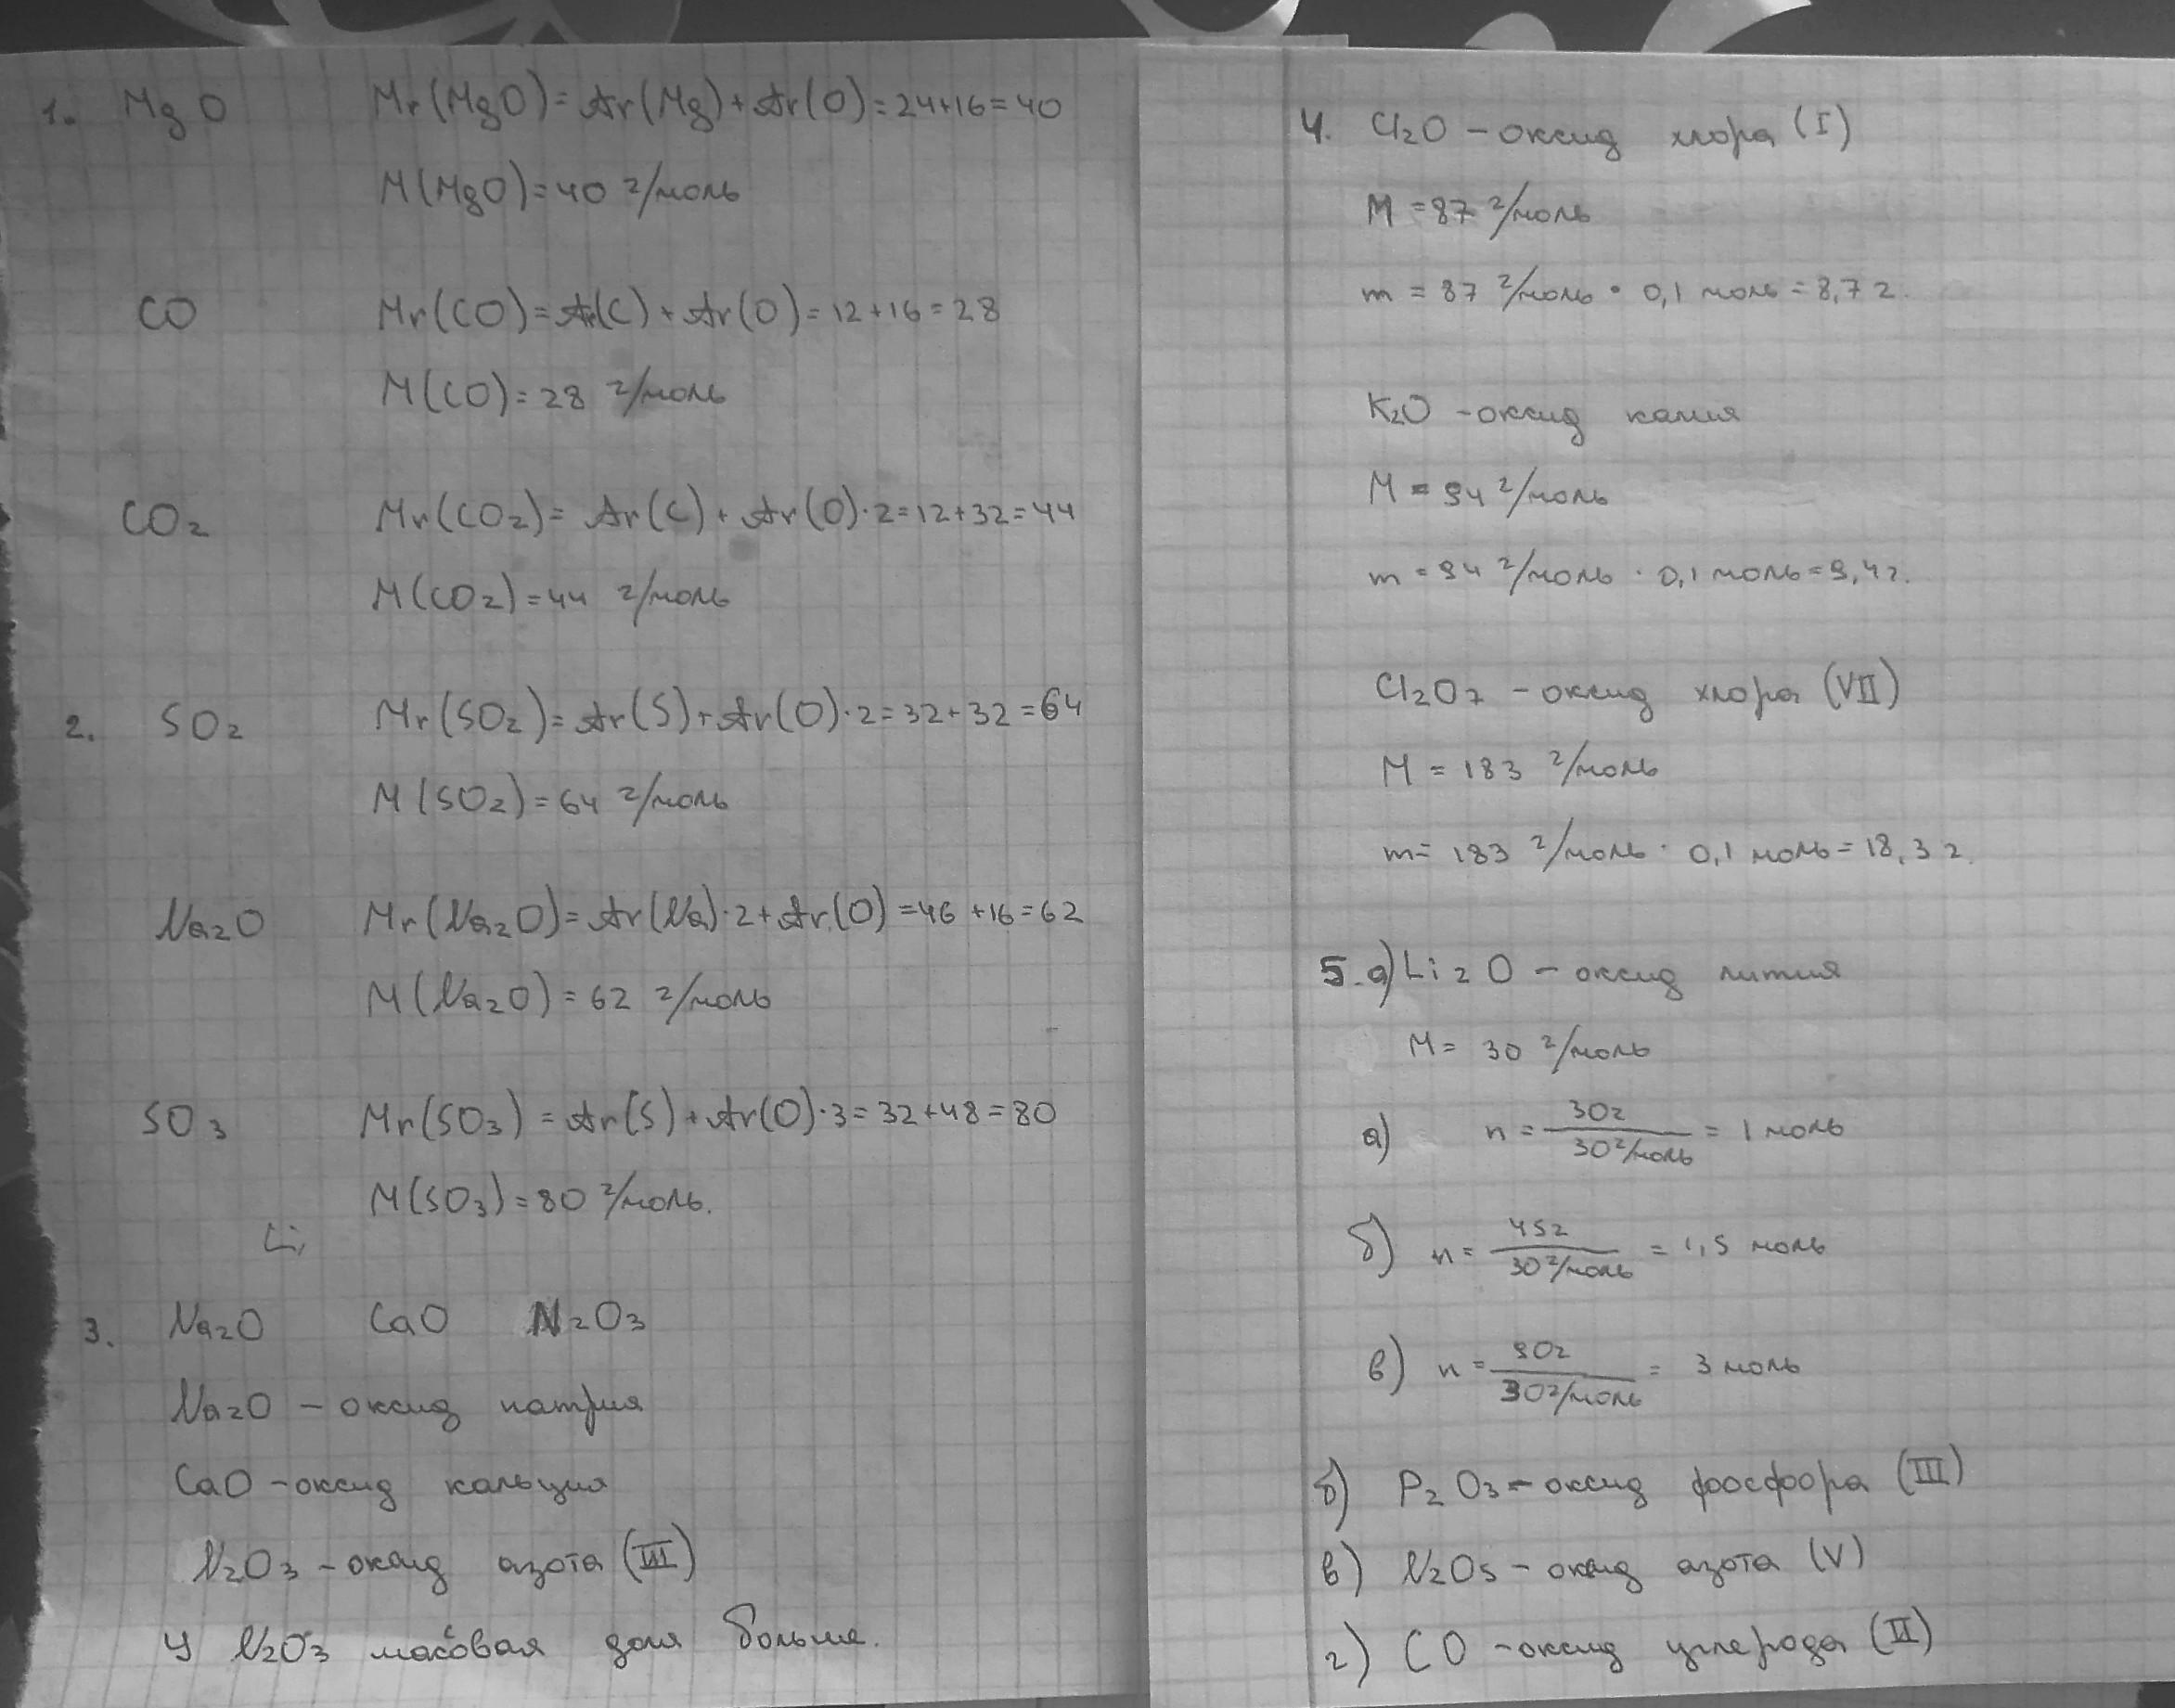 1. MgO Mr(MgO)=Ar(Mg)+Ar(O)=24+16=40
M(MgO)=40 г/моль
CO Mr(CO)=Ar(C)+Ar(O)=12+16=28
M(CO)=28 г/моль
CO₂ Mr(CO₂)=Ar(C)+Ar(O)·2=12+32=44
M(CO₂)=44 г/моль
2. SO₂ Mr(SO₂)=Ar(S)+Ar(O)·2=32+32=64
M(SO₂)=64 г/моль
Na₂O Mr(Na₂O)=Ar(Na)·2+Ar(O)=46+16=62
M(Na₂O)=62 г/моль
SO₃ Mr(SO₃)=Ar(S)+Ar(O)·3=32+48=80
M(SO₃)=80 г/моль.
Li
3. Na₂O CaO N₂O₃
Na₂O – оксид натрия
CaO – оксид кальция
N₂O₃ – оксид азота (III)
У N₂O₃ массовая доля больше.
4. Cl₂O – оксид хлора (I)
M = 87 г/моль
m = 87 г/моль · 0,1 моль = 8,7 г.
K₂O – оксид калия
M = 94 г/моль
m = 94 г/моль · 0,1 моль = 9,4 г.
Cl₂O₇ – оксид хлора (VII)
M = 183 г/моль
m = 183 г/моль · 0,1 моль = 18,3 г.
5. а) Li₂O – оксид лития
M = 30 г/моль
а) n = 30г / 30г/моль = 1 моль
б) n = 45г / 30г/моль = 1,5 моль
в) n = 90г / 30г/моль = 3 моль
б) P₂O₃ – оксид фосфора (III)
в) N₂O₅ – оксид азота (V)
г) CO – оксид углерода (II)